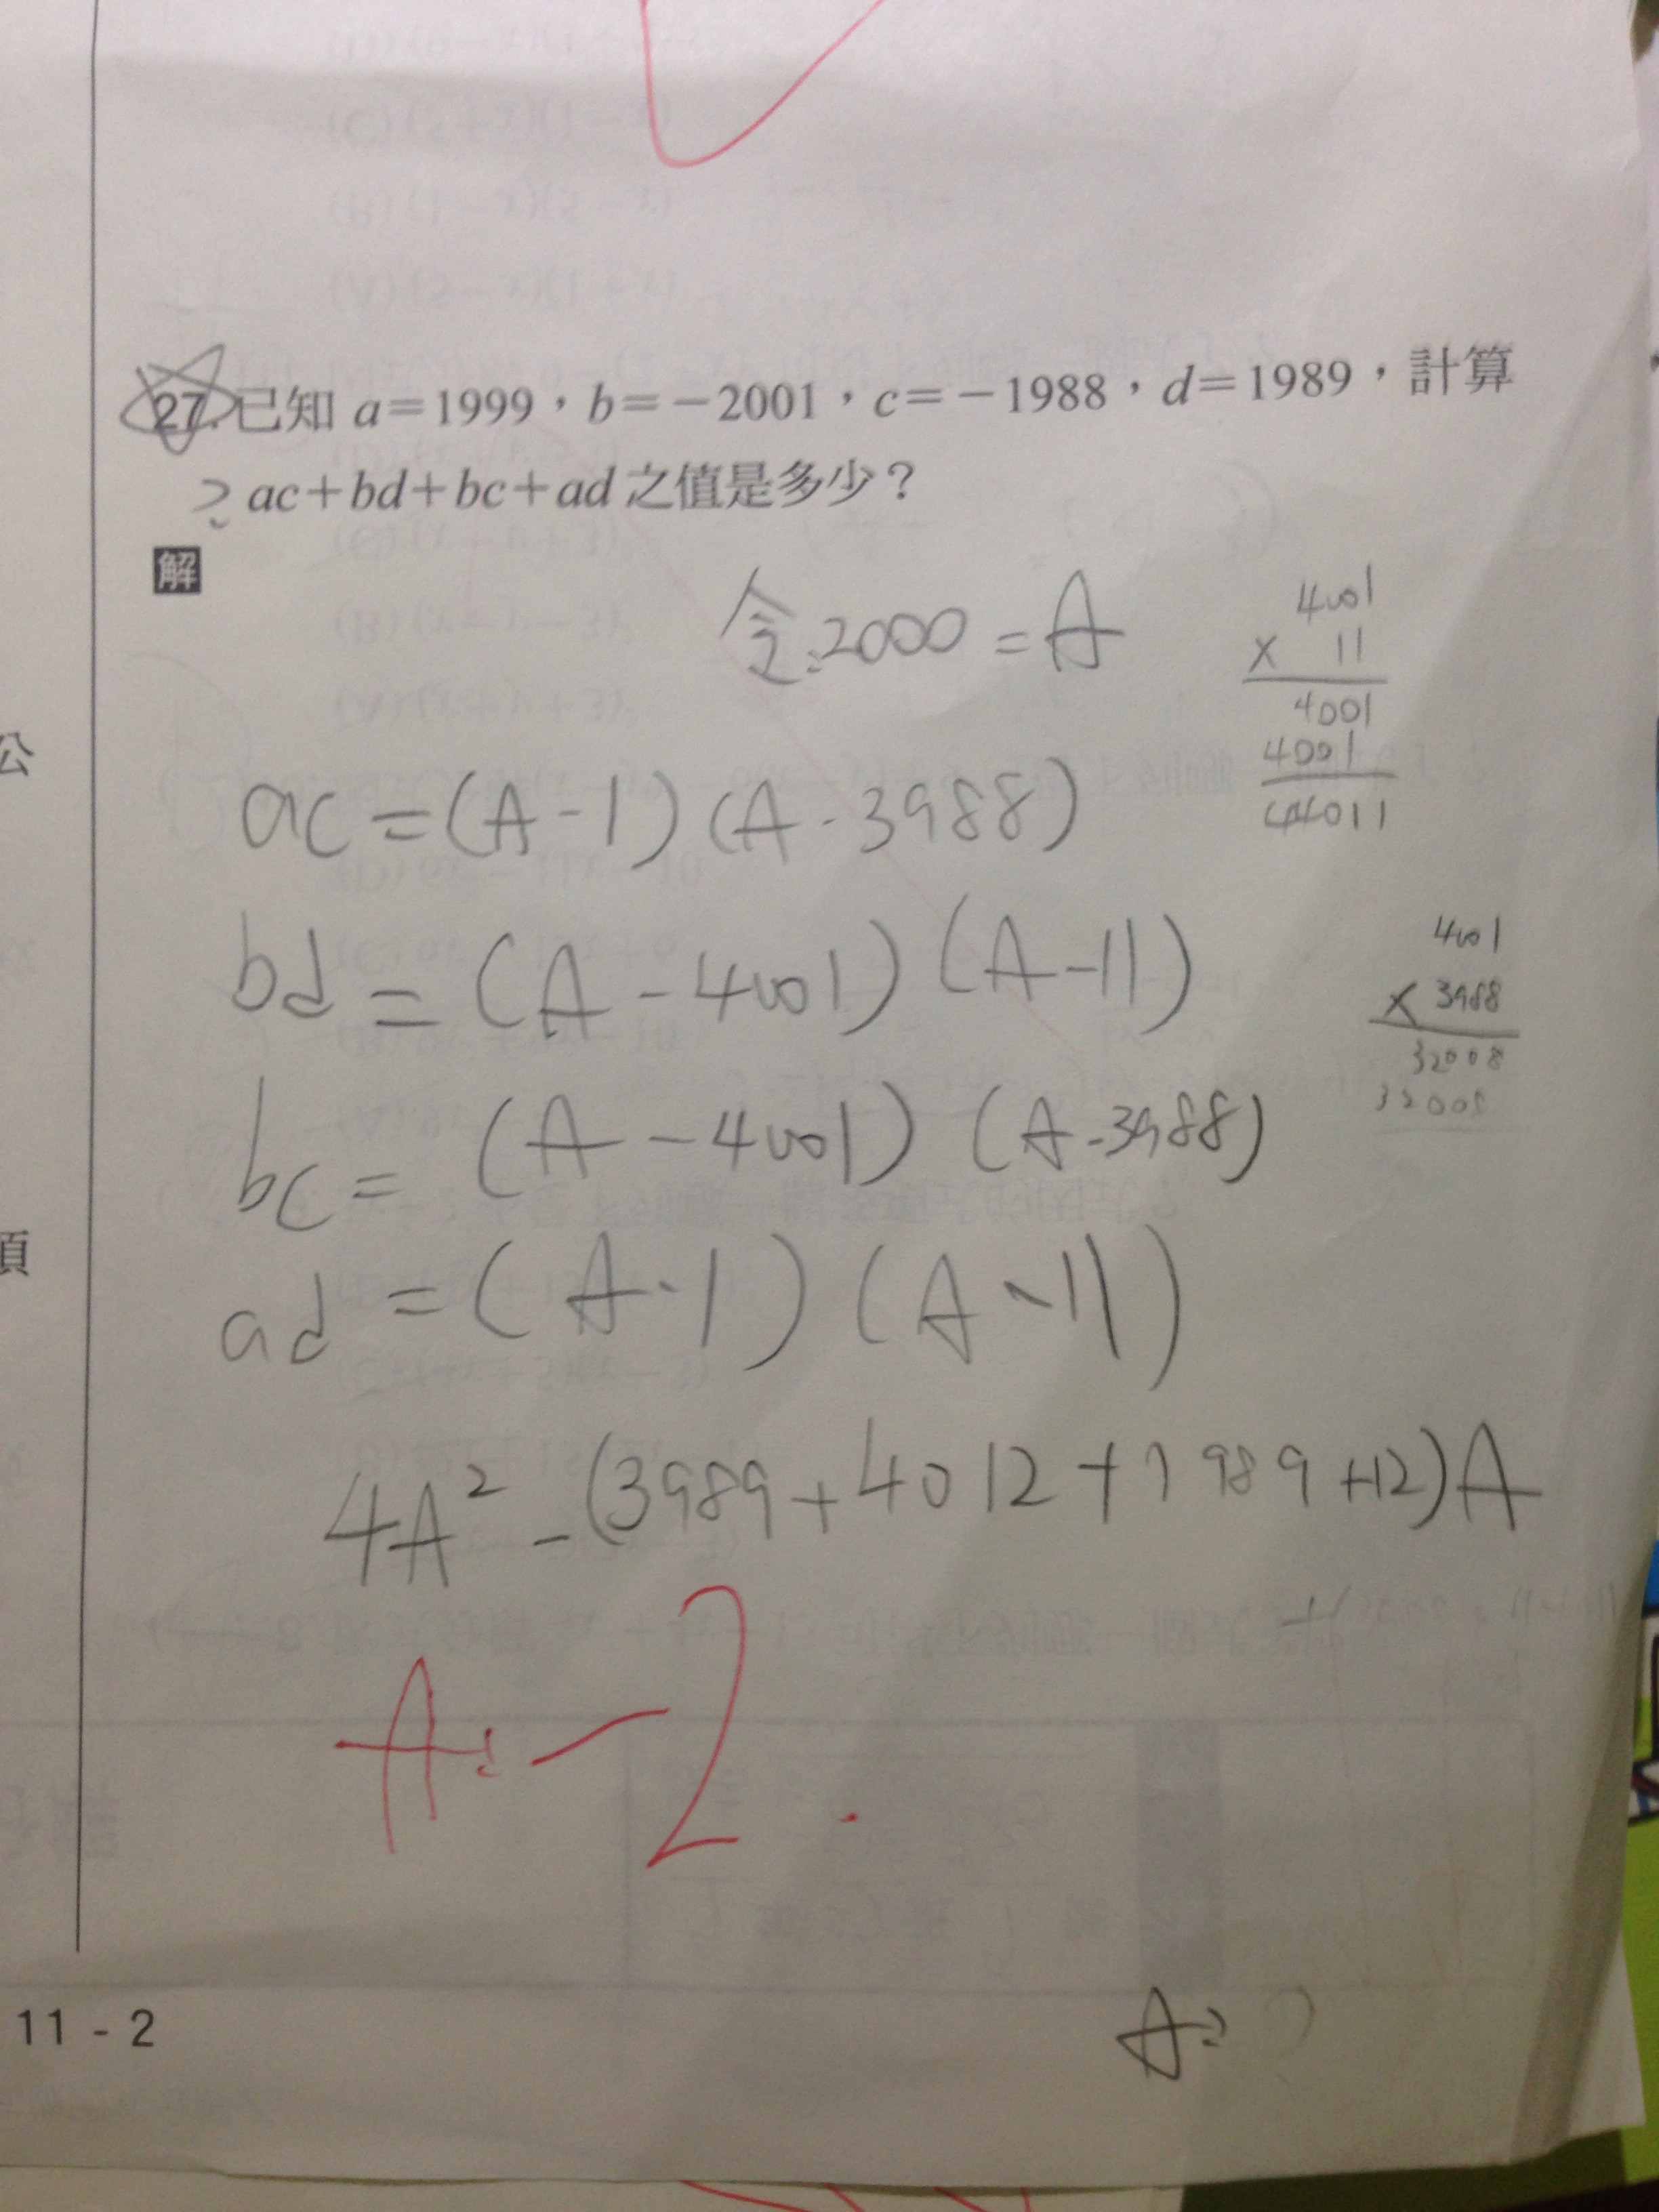 27. 已知 a＝1999，b＝－2001，c＝－1988，d＝1989，計算
ac＋bd＋bc＋ad 之值是多少？
解
令:2000 = A
4001
× 11
4001
4001
44011
ac = (A-1) (A-3988)
bd = (A-4001) (A-11)
4001
× 3988
32008
32008
bc = (A-4001) (A-3988)
ad = (A-1) (A-11)
4A² - (3989+4012+7989+12)A
A: -2.
公
項
11 - 2
A: